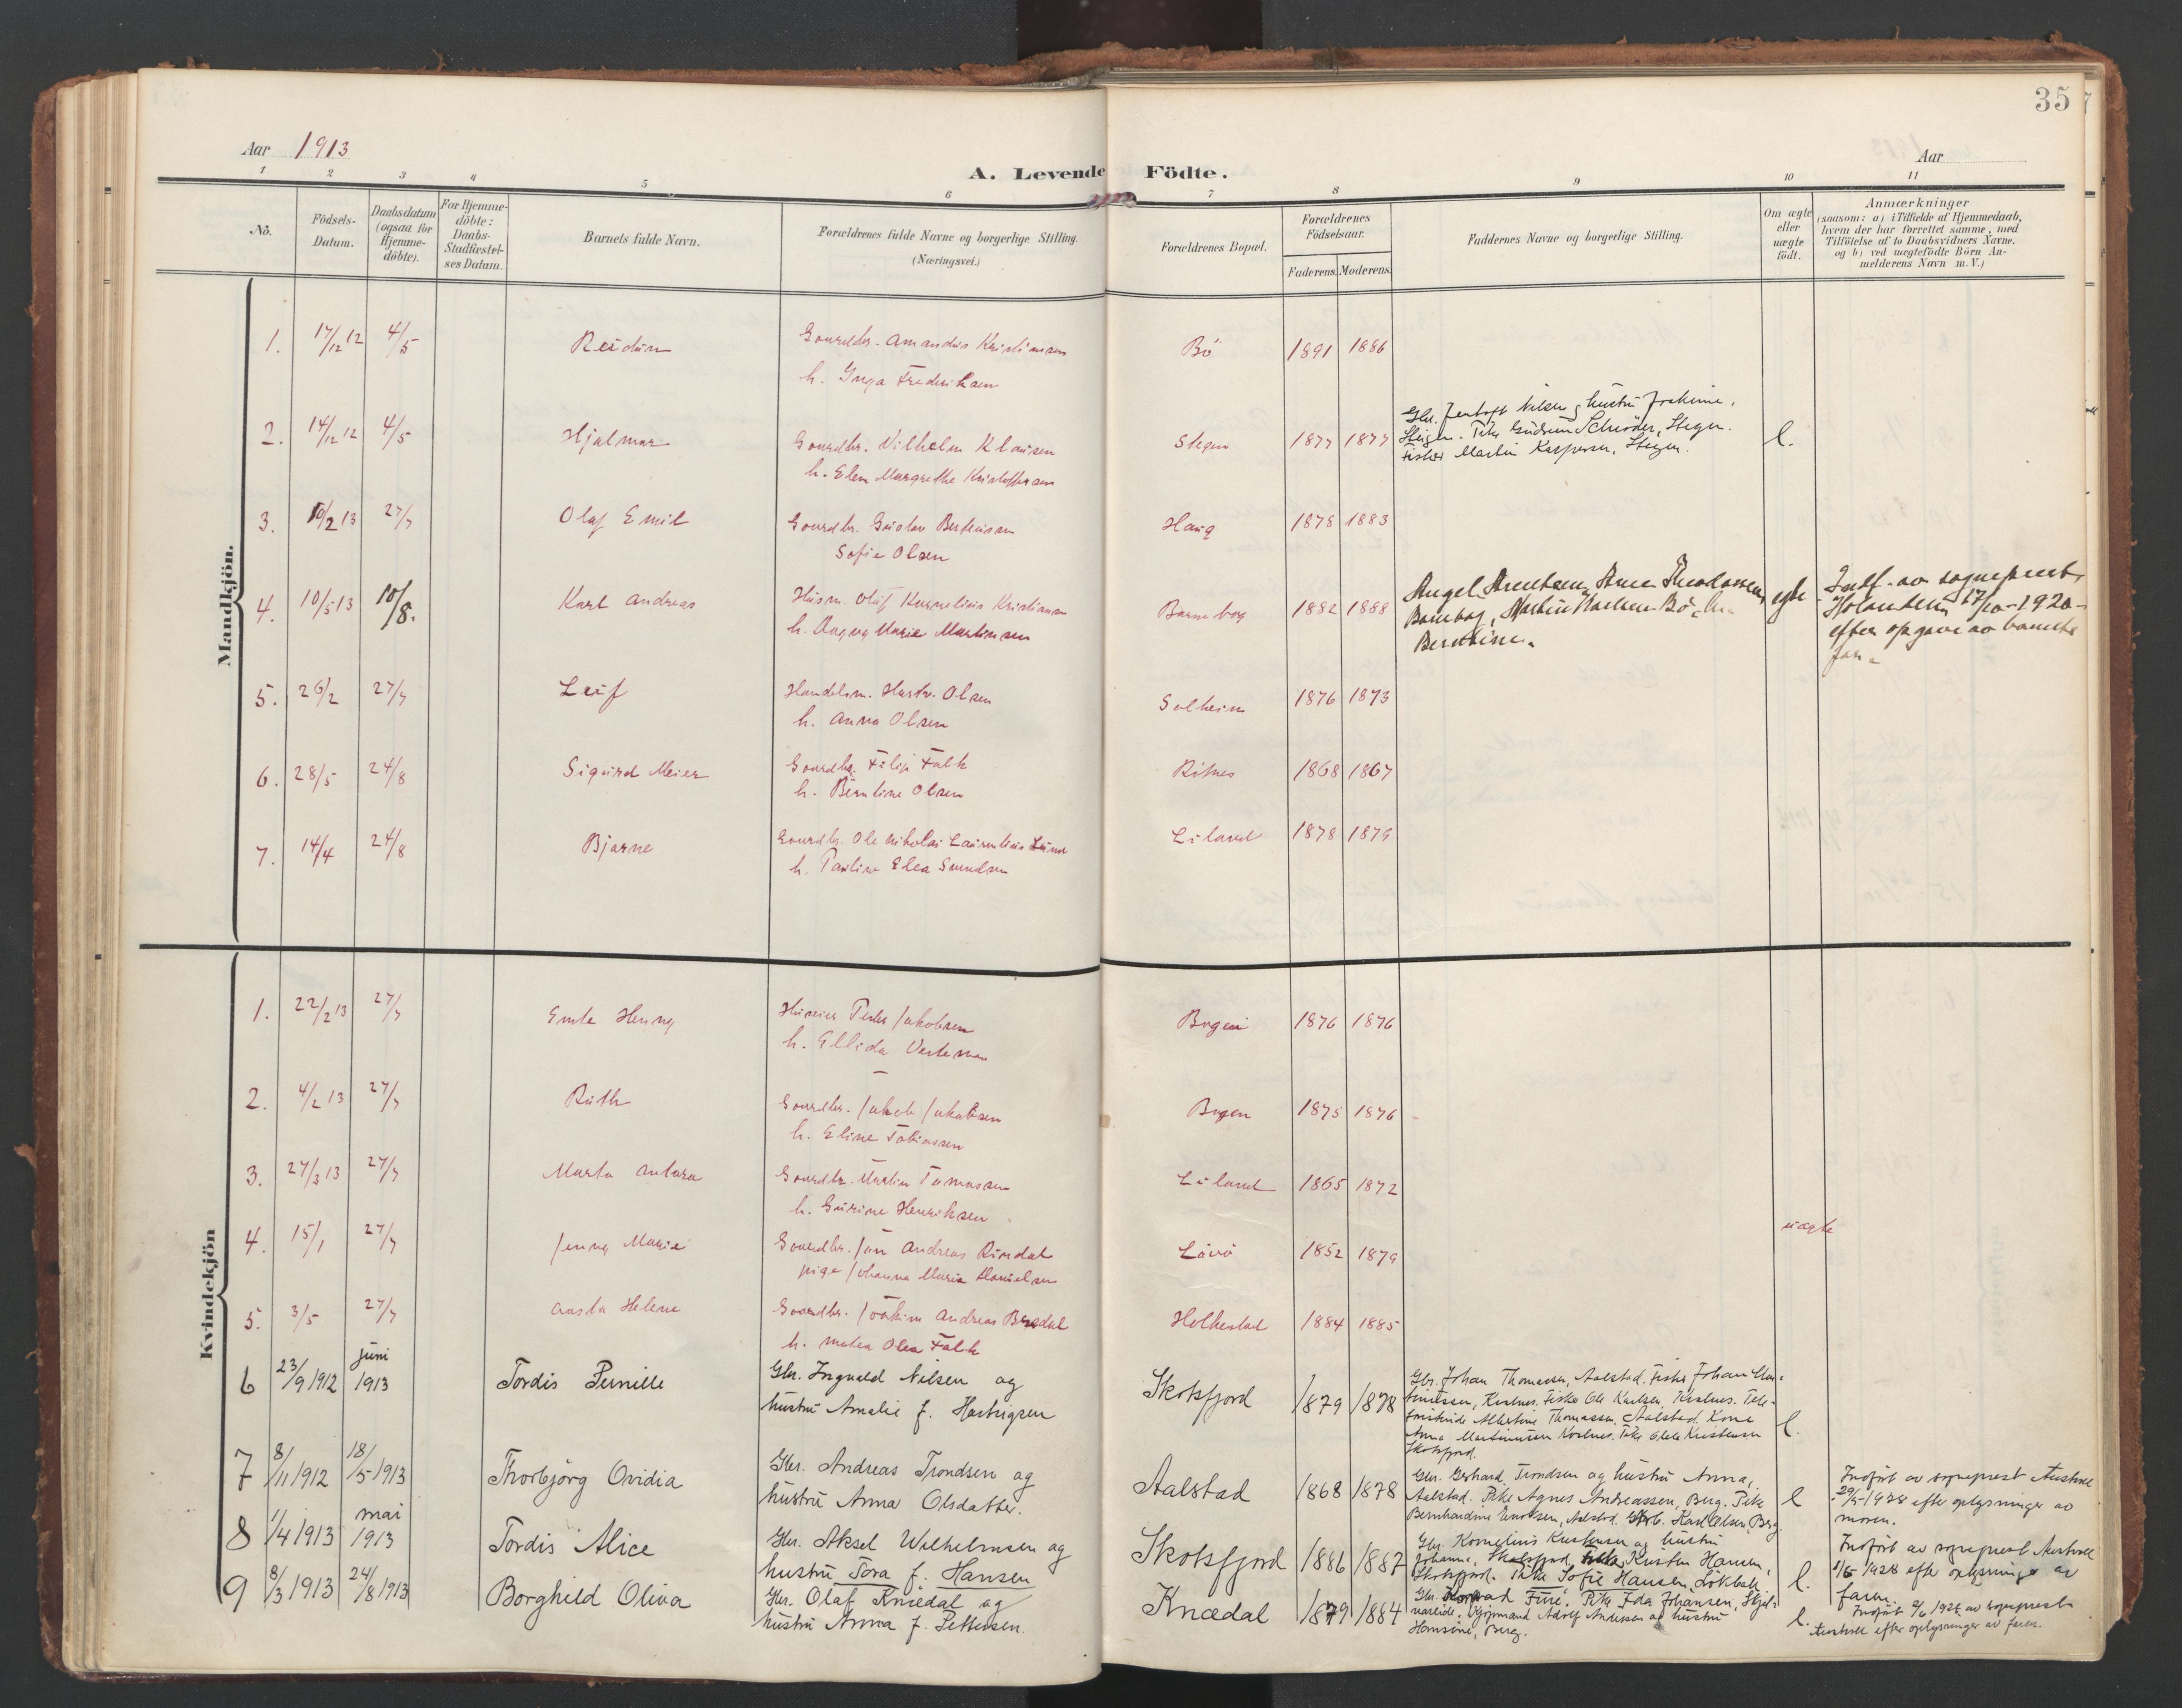 35
Aar 1913
A. Levende Födte.
Aar
1 2 3 4 5 6 7 8 9 10 11
No.
Födsels-
Datum.
Daabsdatum
(ogsaa for
Hjemme-
döbte).
For Hjemme-
döbte:
Daabs-
Stadfæstel-
ses Datum.
Barnets fulde Navn.
Forældrenes fulde Navne og borgerlige Stilling.
(Næringsvei.)
Forældrenes Bopæl.
Forældrenes
Födselsaar.
Faderens. Moderens.
Faddernes Navne og borgerlige Stilling.
Om ægte
eller
uægte
födt.
Anmærkninger
(saasom: a) i Tilfælde af Hjemmedaab,
hvem der har forrettet samme, med
Tilföielse af to Daabsvidners Navne.
og b) ved uægtefödte Börn An-
melderens Navn m.V.)
Mandkjön.
1. 17/12 12 4/5 Reidun Gaardbr. Amandus Kristiansen Bö 1891 1886
h. Inga Frederiksen
2. 14/12 12 4/5 Hjalmar Gaardbr. Vilhelm Klausen Stegen 1877 1877
h. Elen Margrethe Kristoffersen
Gbr. Jentoft Nilsen og hustru Joakime,
Steigen. Pike Gudrun Schröder, Stegen.
Fisker Martin Kaspersen, Stegen.
l.
3. 10/2 13 27/7 Olaf Emil Gaardbr. Gustav Berteussen Haug 1878 1883
Sofie Olsen
4. 10/5 13 10/8. Karl Andreas Husm. Oluf Kornelius Kristiansen Barnebog 1882 1888
h. Dagny Marie Martinsen
Angel Arentsen, Anne Theodorsen,
Bambog, Martin Karlsen Bö,
Berntine.
egte
Indf. av sogneprest
17/10-1920-
efter opgave av barnets
far.
5. 26/2 27/7 Leif Handelsm. Hartv. Olsen Solheim 1876 1873
h. Anna Olsen
6. 28/5 24/8 Sigurd Meier Gaardbr. Filip Falk Ritnes 1868 1867
h. Berntine Olsen
7. 14/4 24/8 Bjarne Gaardbr. Ole Nikolai Laurentius Lund Leiland 1878 1879
h. Pauline Elea Svendsen
Kvindekjön
1. 22/2 13 27/7 Emte Henny Huseier Peder Jakobsen Bogen 1876 1876
h. Ellida
2. 4/2 13 27/7 Ruth Gaardbr. Jakob Jakobsen Bogen 1875 1876
h. Eline Tobiassen
3. 27/3 13 27/7 Marta Antora Gaardbr. Martin Tomassen Leiland 1865 1872
h. Gurine Henriksen
4. 15/1 27/7 Jenny Marie Gaardbr. Jan Andreas Rindal Lövö 1852 1879 uægte
pige Johanna Maria Danielsen
5. 3/5 27/7 Aasta Helene Gaardbr. Joakim Andreas Bredal Helkestad 1884 1885
h. Matea Olea Falk
6 23/9 1912 juni 1913 Tordis Pernille Gbr. Ingvald Nilsen og Skotsfjord 1879 1878
hustru Amalie f. Hartvigsen
Gbr. Johan Thomassen, Aalstad. Fisker Johan Mar-
tinussen, Koslnes. Fisker Ole Karlsen, Koslnes. Tele-
fonistinde Albertine Thomassen, Aalstad. Kone
Anna Martinussen Koslnes. Pike Olella Kristensen
Skotsfjord.
l.
7 8/11 1912 18/5 1913 Thorbjörg Ovidia Gbr. Andreas Trondsen og Aalstad 1868 1878
hustru Anna Olsdatter.
Gbr. Gerhard Trondsen og hustru Anna,
Aalstad. Pike Agnes Andreassen, Berg. Pike
Bernhardine Enoksen, Aalstad. Gbr. Karl Olsen, Berg.
l
Indført av sogneprest
29/5-1928 efter oplysninger av
moren.
8 1/4 1913 mai 1913 Tordis Alice Gbr. Aksel Wilhelmsen og Skotsfjord 1886 1887
hustru Tora f. Hansen
Gbr. Kornelius Kristensen og hustru
Johanna, Skotsfjord, Kristen Hansen,
Skotsfjord. Pike Sofie Hansen, Lökbak.
l.
Indført av sogneprest
1/6 1928 efter oplysninger av
faren.
9 8/3 1913 24/8 1913 Borghild Oliva Gbr. Olaf Knædal og Knædal 1879 1884
hustru Anna f. Pettersen.
Gbr. Konrad Fure. Pike Ida Johansen, Skjel-
vareide. Adolf Andersen og hustru
Hansine, Berg.
l.
Indført 2/6 1928 av sogneprest
efter oplysninger av faren.